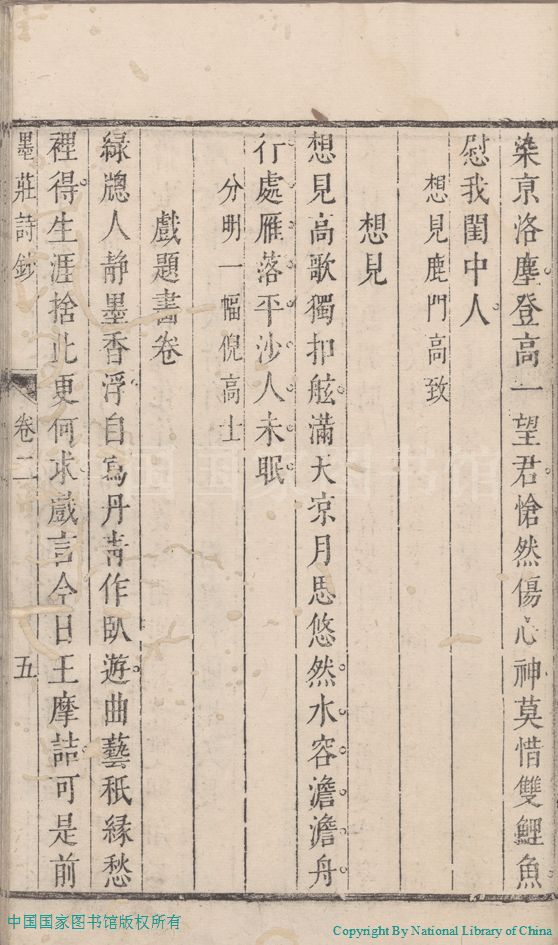 染京洛塵登高一望君愴然傷心神莫惜雙鯉魚
慰我閨中人
想見鹿門高致
想見
想見高歌獨扣舷滿天凉月思悠然水容澹澹舟
行處雁落平沙人未眠
分明一幅倪高士
戲題畫卷
綠牕人靜墨香浮自寫丹青作臥遊曲藝秖緣愁
裡得生涯捨此更何求戲言今日王摩詰可是前
墨莊詩鈔
卷二
五
中国国家图书馆版权所有
Copyright By National Library of China